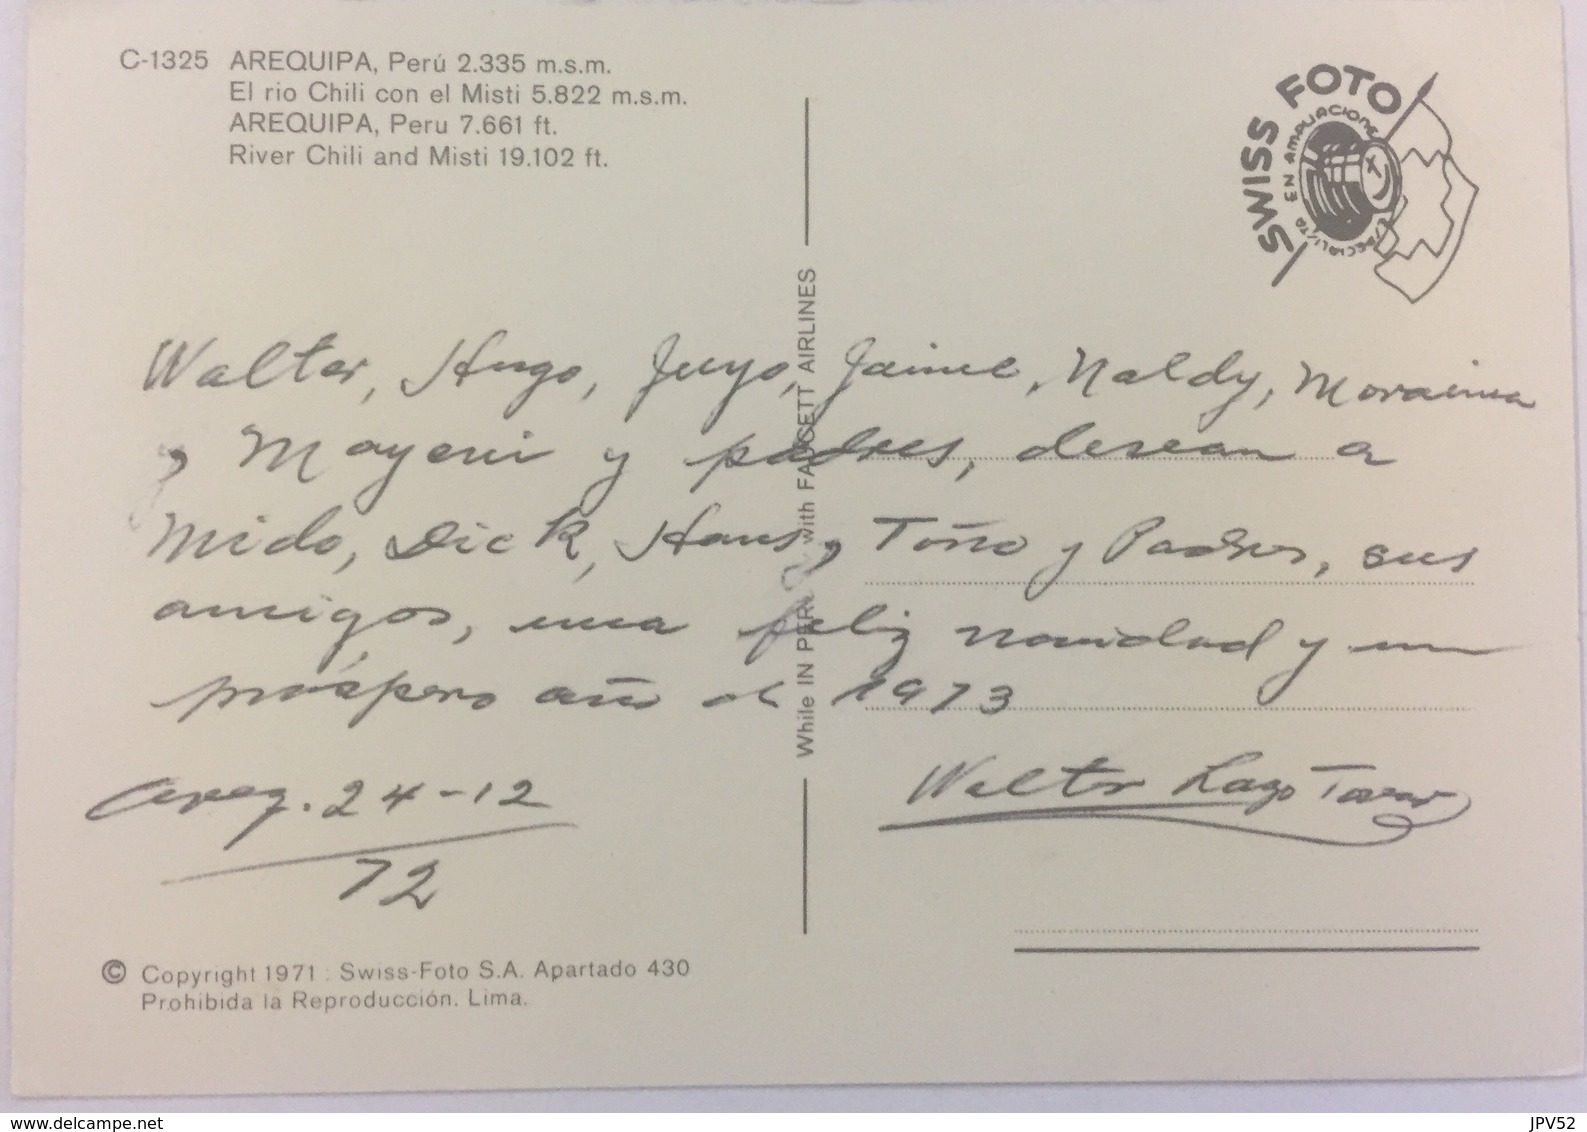 C-1325 AREQUIPA, Perú 2.335 m.s.m.
El rio Chili con el Misti 5.822 m.s.m.
AREQUIPA, Peru 7.661 ft.
River Chili and Misti 19.102 ft.
SWISS FOTO
ESPECIALISTA EN AMPLIACIONES
While IN PERU with FAUCETT AIRLINES
Walter, Hugo, Juyo, Jaime, Naldy, Moraima
, Mayeni y padres, desean a
Mido, Dick, Hans, Toño y Padres, sus
amigos, una feliz navidad y un
próspero año de 1973
Areq. 24-12
72
Walter Lazo Tovar
© Copyright 1971: Swiss-Foto S.A. Apartado 430
Prohibida la Reproducción. Lima.
www.delcampe.net
JPV52